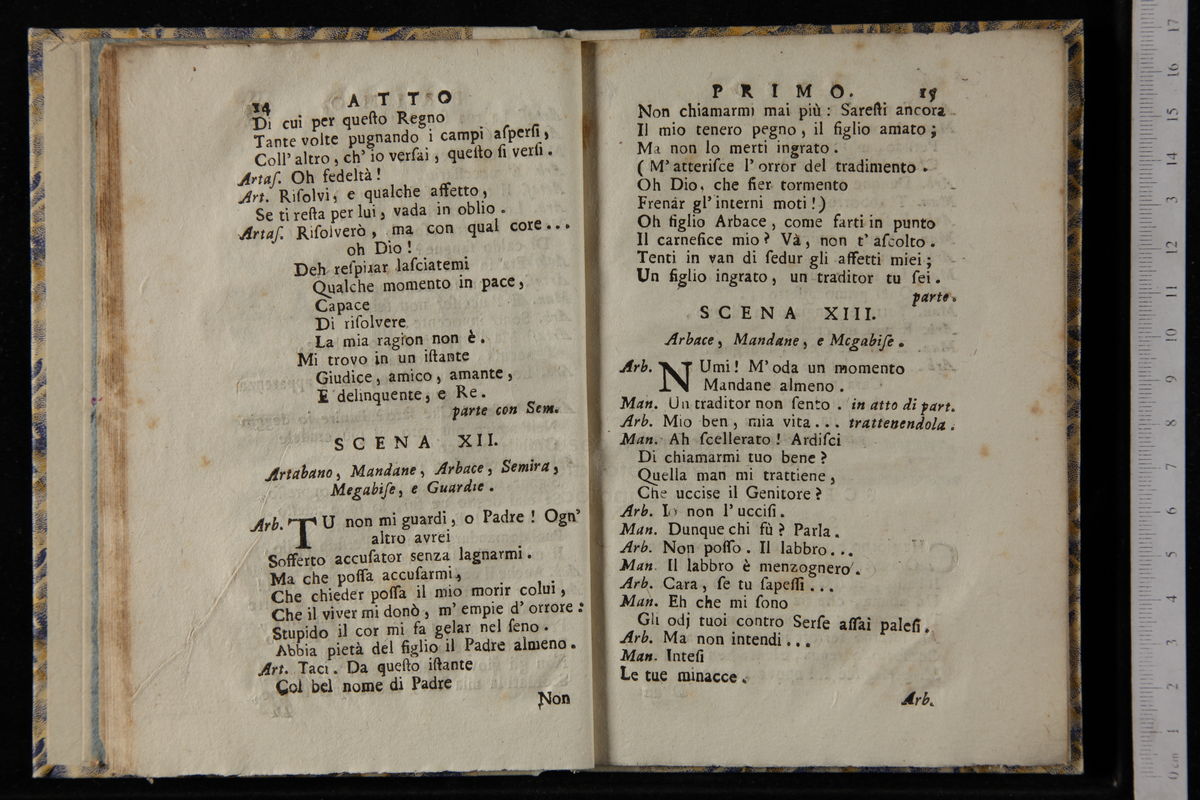 14 ATTO
Di cui per queſto Regno
Tante volte pugnando i campi aſperſi,
Coll' altro, ch' io verſai, queſto ſi verſi.
Artaſ. Oh fedeltà!
Art. Riſolvi, e qualche affetto,
Se ti reſta per lui, vada in oblio.
Artaſ. Riſolverò, ma con qual core...
oh Dio!
Deh reſpirar laſciatemi
Qualche momento in pace,
Capace
Di riſolvere
La mia ragion non è.
Mi trovo in un iſtante
Giudice, amico, amante,
E delinquente, e Re.
parte con Sem.
SCENA XII.
Artabano, Mandane, Arbace, Semira,
Megabiſe, e Guardie.
Arb. TU non mi guardi, o Padre! Ogn'
altro avrei
Sofferto accuſator senza lagnarmi.
Ma che poſſa accuſarmi,
Che chieder poſſa il mio morir colui,
Che il viver mi donò, m' empie d' orrore:
Stupido il cor mi fa gelar nel ſeno.
Abbia pietà del figlio il Padre almeno.
Art. Taci. Da queſto iſtante
Col bel nome di Padre
Non
PRIMO. 15
Non chiamarmi mai più: Sareſti ancora
Il mio tenero pegno, il figlio amato;
Ma non lo merti ingrato.
(M' atteriſce l' orror del tradimento.
Oh Dio, che fier tormento
Frenar gl' interni moti!)
Oh figlio Arbace, come farti in punto
Il carnefice mio? Và, non t' aſcolto.
Tenti in van di ſedur gli affetti miei;
Un figlio ingrato, un traditor tu ſei.
parte.
SCENA XIII.
Arbace, Mandane, e Megabiſe.
Arb. NUmi! M' oda un momento
Mandane almeno.
Man. Un traditor non ſento. in atto di part.
Arb. Mio ben, mia vita... trattenendola.
Man. Ah ſcellerato! Ardiſci
Di chiamarmi tuo bene?
Quella man mi trattiene,
Che uccise il Genitore?
Arb. Io non l' ucciſi.
Man. Dunque chi fù? Parla.
Arb. Non poſſo. Il labbro...
Man. Il labbro è menzognero.
Arb. Cara, ſe tu ſapeſſi...
Man. Eh che mi ſono
Gli odj tuoi contro Serſe aſſai paleſi.
Arb. Ma non intendi...
Man. Inteſi
Le tue minacce.
Arb.